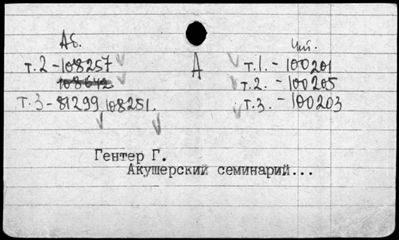 Аб.
т.2 - 108257
108642
т.3 - 81299 108251.
А
Чит.
т.1. - 100201
т.2. - 100205
т.3. - 100203
Гентер Г.
Акушерский семинарий...